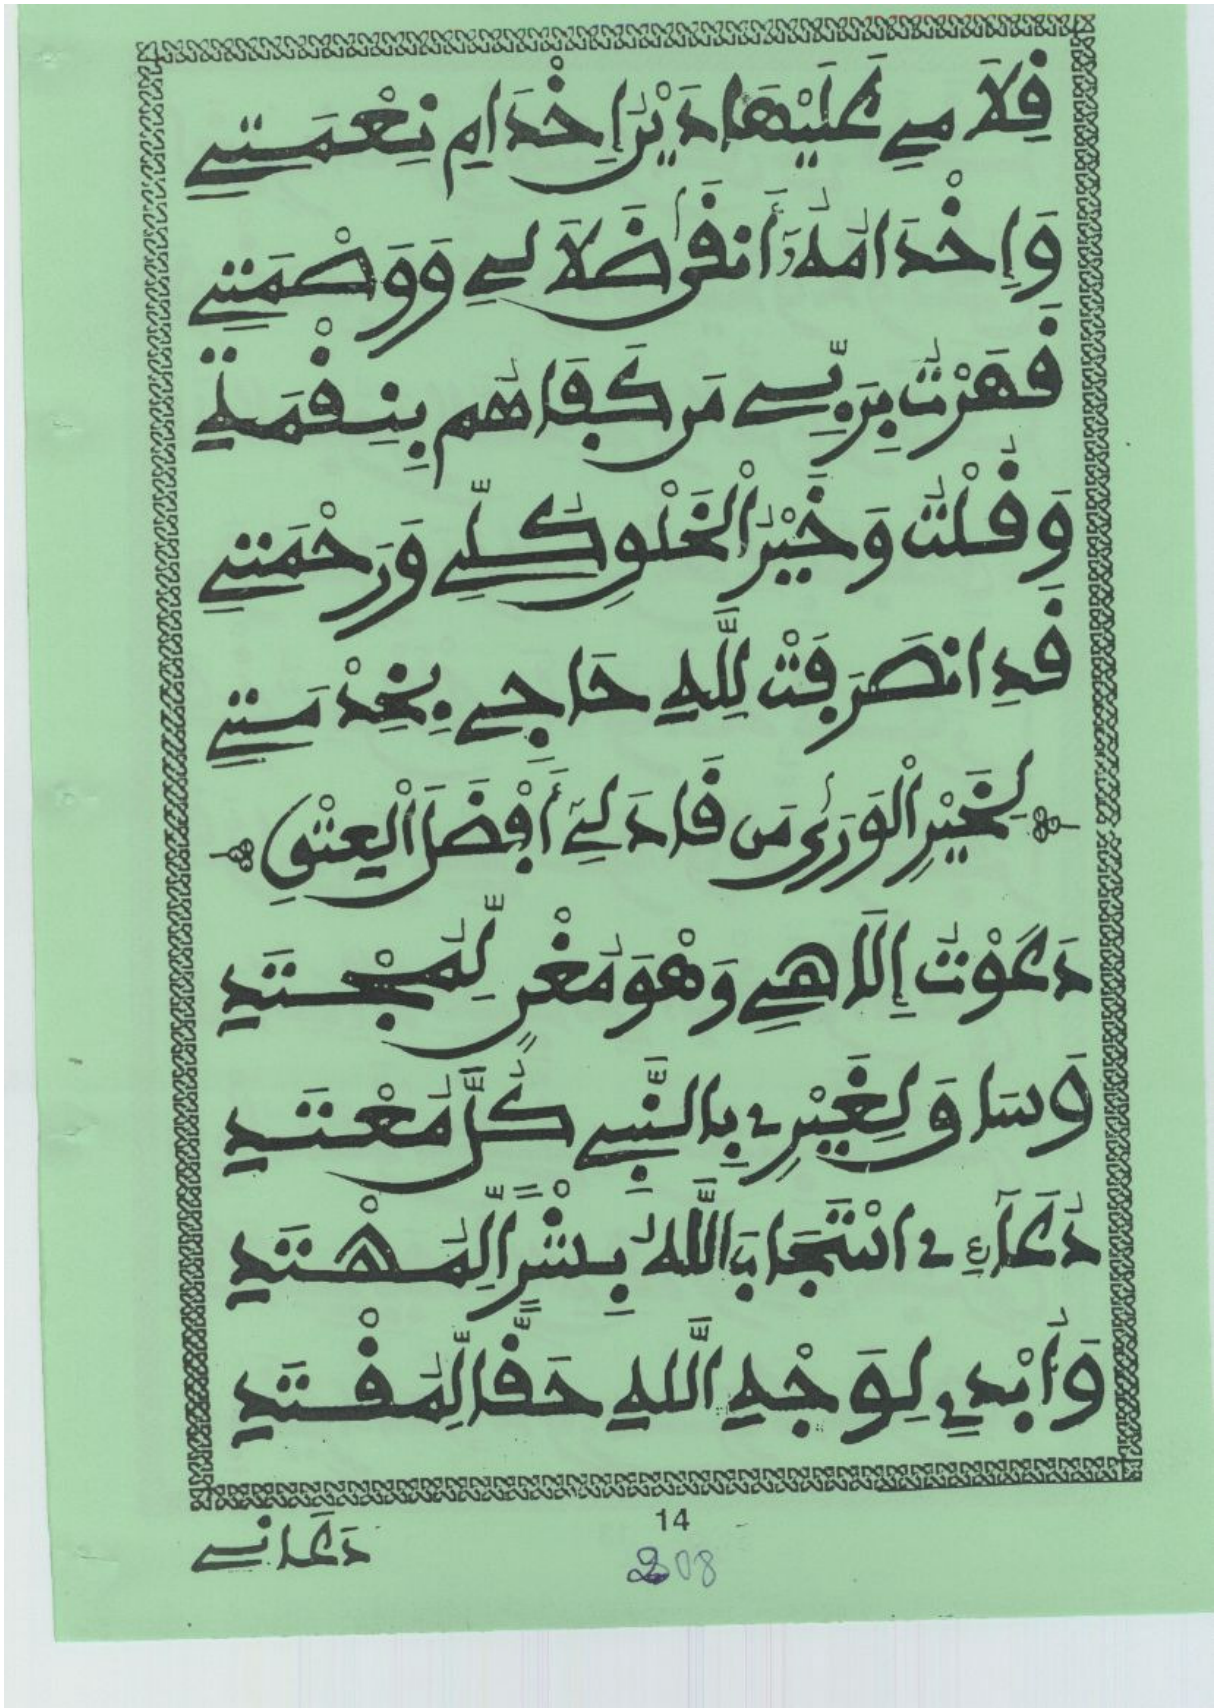 فِلَامِے عَلَيْهَا دَيْنُ إِخْدَامِ نِعْمَتِے
وَإِخْدَامُهُۥ أَنْقَىٰ ضَلَالِے وَوَصْمَتِے
قَهَرْتُ بِرَبِّے مَن كَفَاهُم بِنِقْمَةِ
وَقُلْتُ وَخَيْرُ الْخَلْوِ كُلِّے وَرَحْمَتِے
قَدِ انْصَرَفَتْ لِلَّهِ حَاجِے بِخِدْمَتِے
لِخَيْرِ الْوَرَىٰ مَن قَادَ لِے أَفْضَلَ الْعِتْقِ
دَعَوْتُ إِلَاهِے وَهْوَ مُغْنٍ لِّمُجْتَدِ
وَسَاقَ لِغَيْرِے بِالنَّبِے كُلَّ مُعْتَدِ
دُعَآءِے اسْتَجَابَ اللَّهُ بِشْراً لِّمُهْتَدِ
وَأُبْدِے لِوَجْهِ اللَّهِ حَقّاً لِّمُقْتَدِ
دَعَانِے
14
208